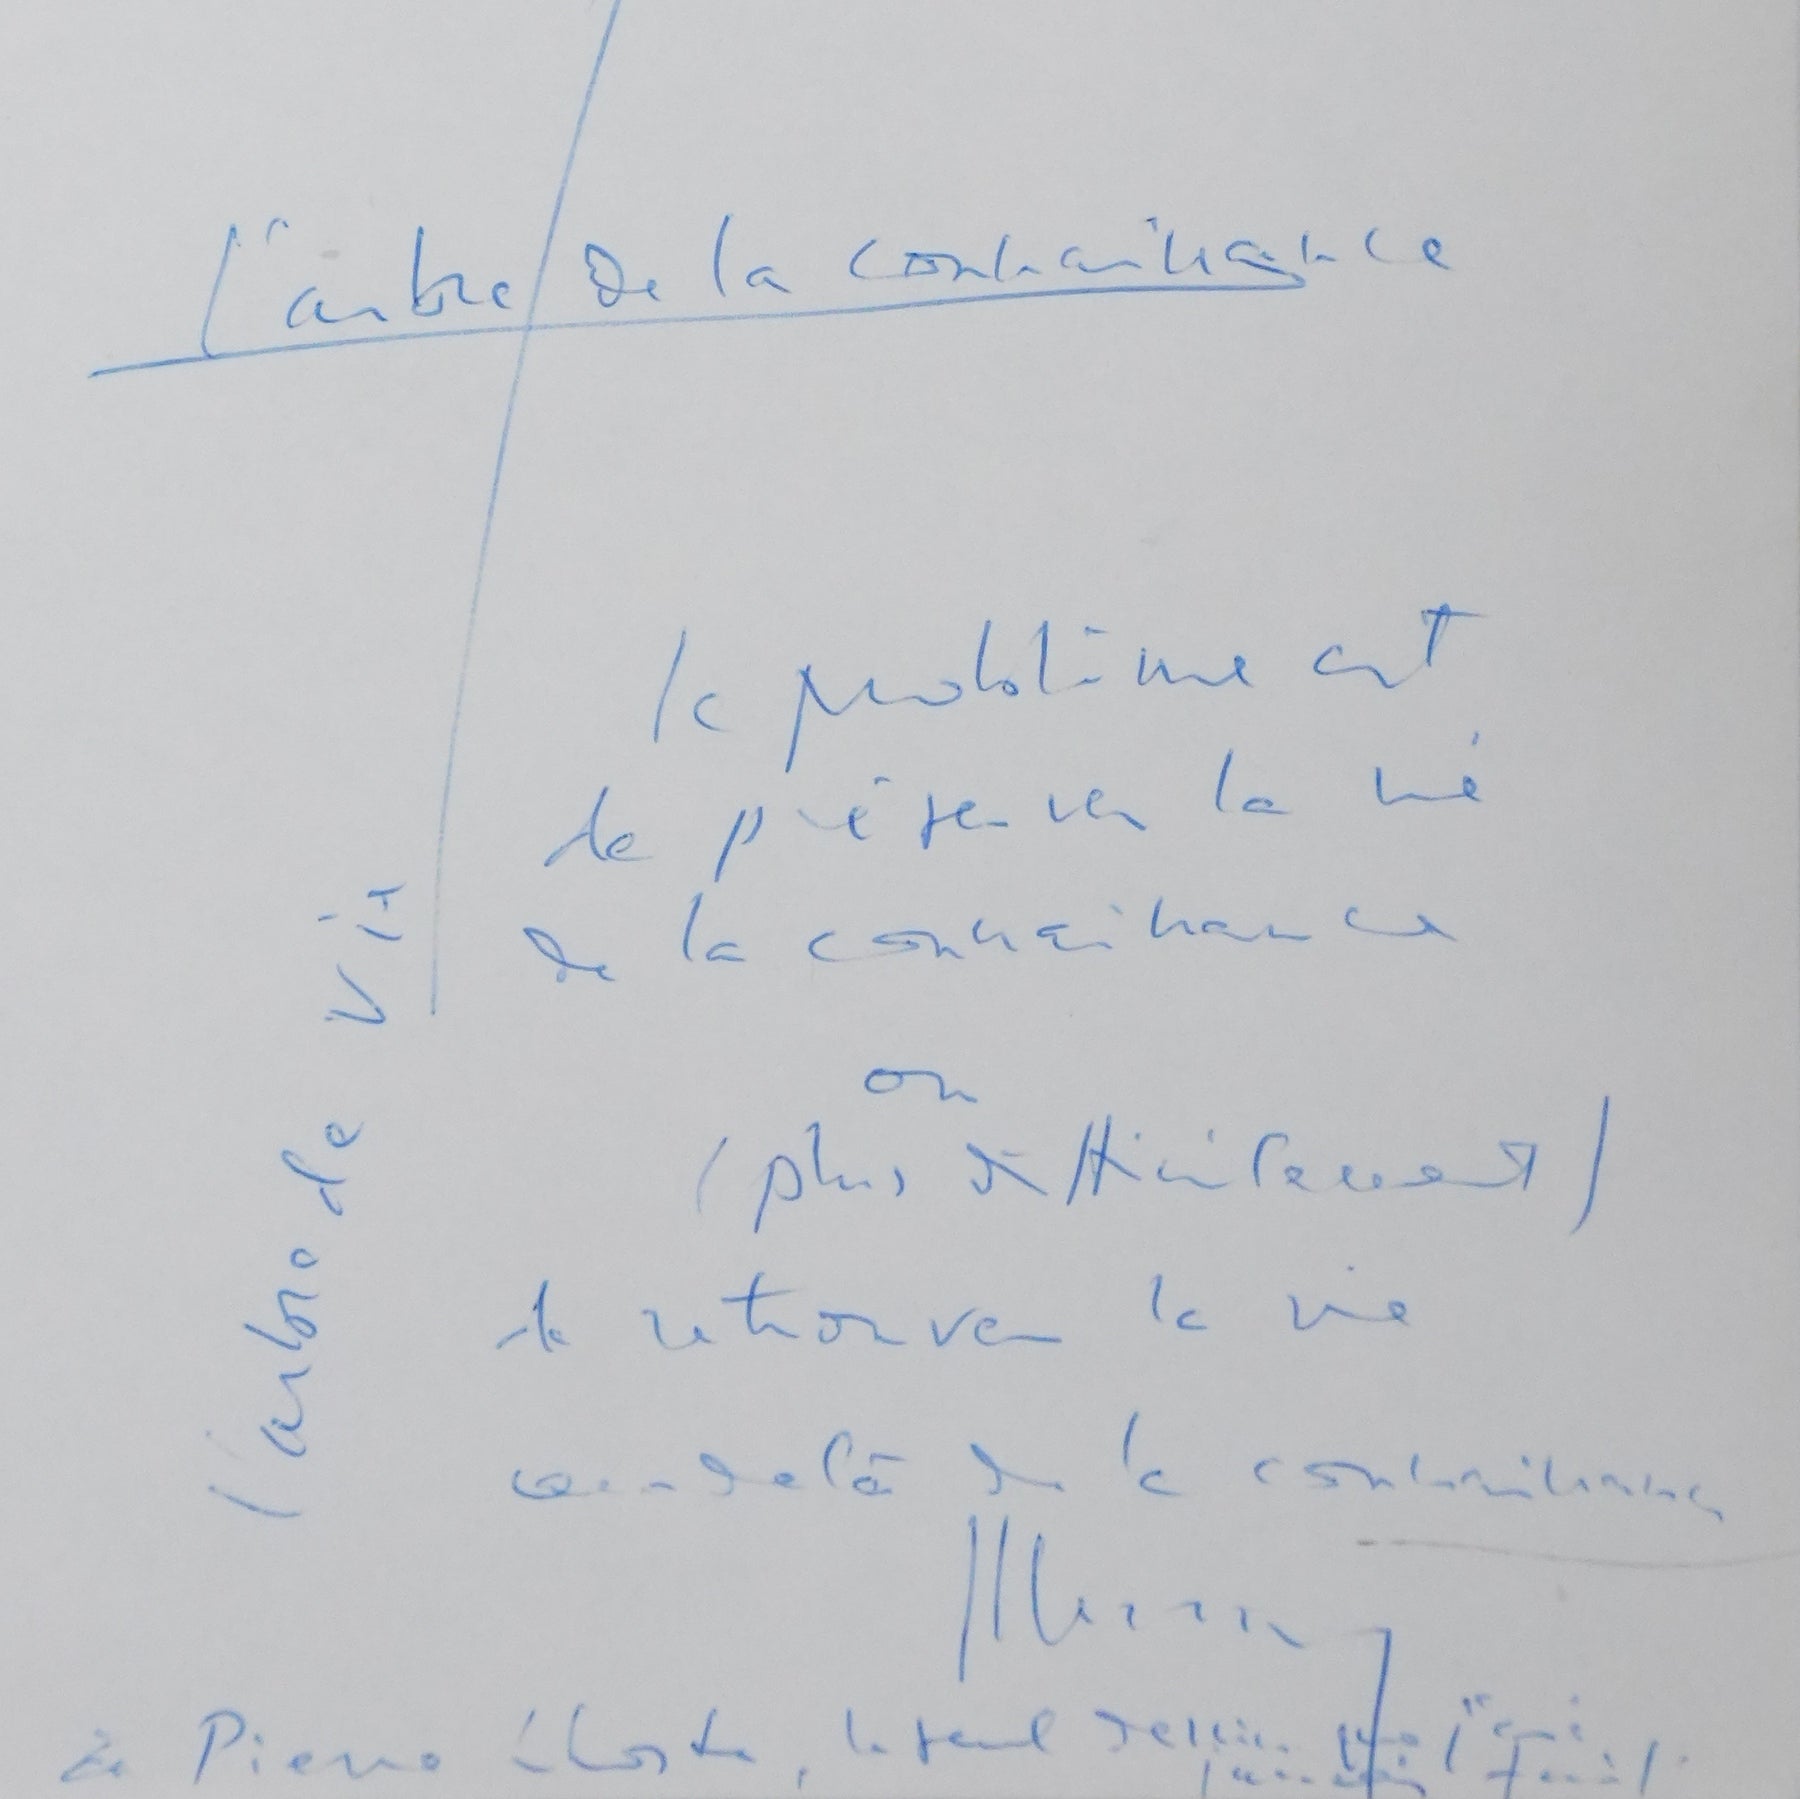 l'arbre de la connaissance
le problème est
de préserver la vie
de la connaissance
ou
(plus difficilement)
de retrouver la vie
au-delà de la connaissance
l'arbre de vie
à Pierre , le seul dessin que j'ai
jamais fait